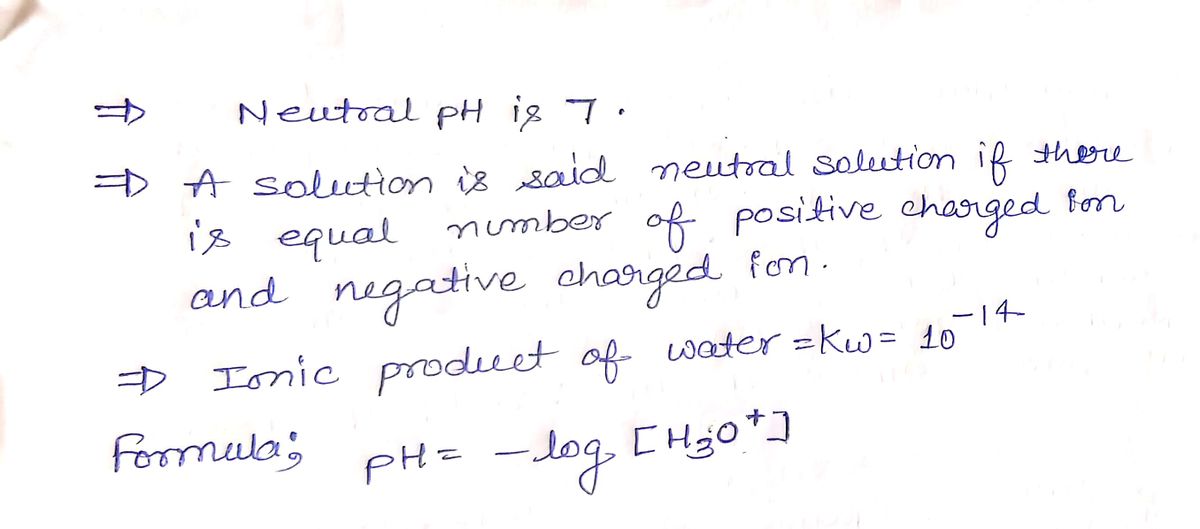 ⇒ Neutral pH is 7.
⇒ A solution is said neutral solution if there
is equal number of positive charged ion
and negative charged ion.
⇒ Ionic product of water = Kw = 10⁻¹⁴
Formula; pH = - log [H₃O⁺]